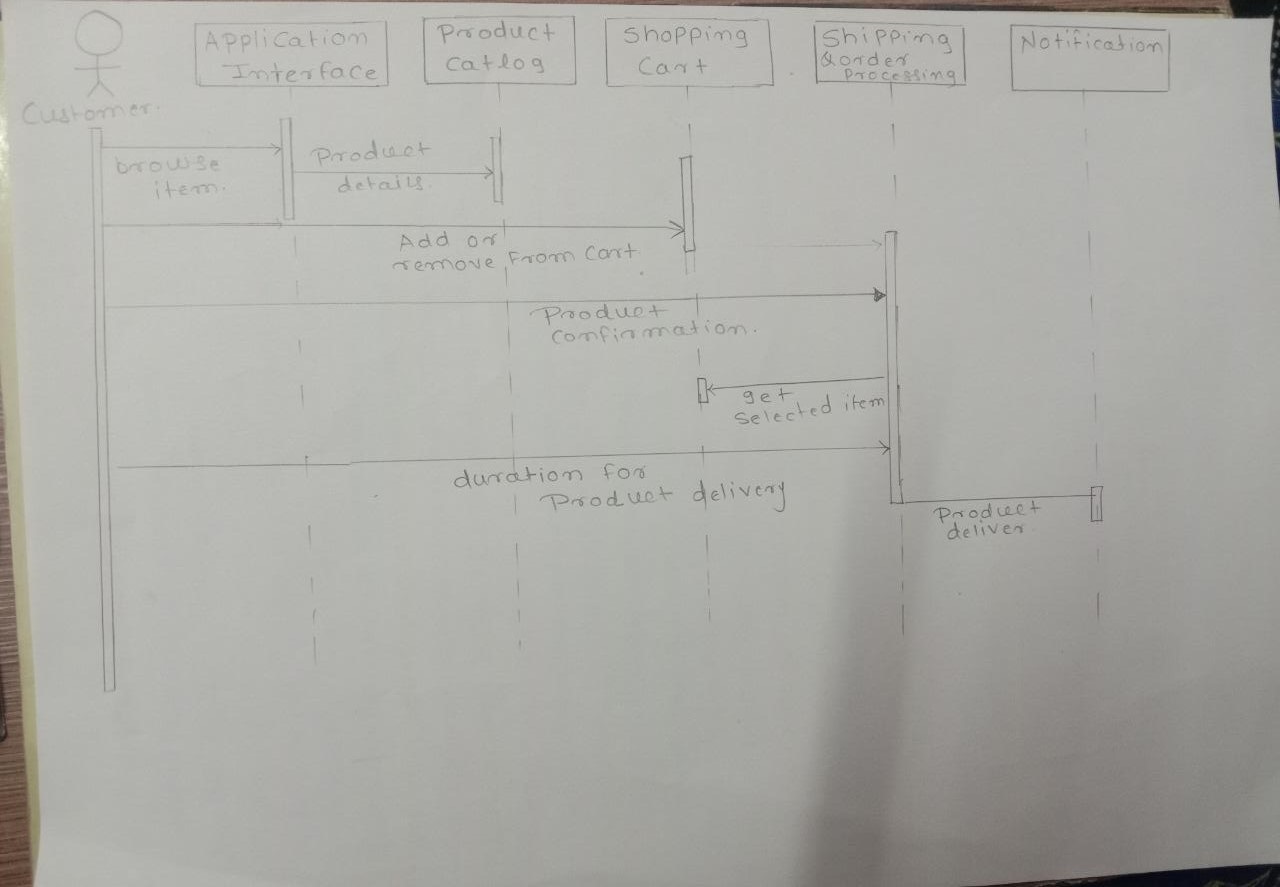 Application
Interface
Product
Catlog
Shopping
Cart
Shipping
&order
Processing
Notification
Customer.
browse
item.
Product
details.
Add or
remove From Cart.
Product
Confirmation.
get
Selected item
duration for
Product delivery
Product
deliver